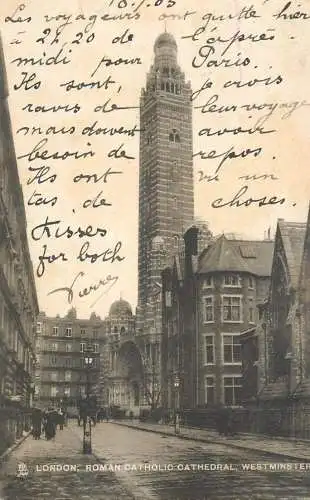 10/7.03
Les voyageurs ont quitté hier
à 2h.20 de l'après.
midi pour Paris.
Ils sont, je crois
ravis de leur voyage
mais doivent avoir
besoin de repos.
Ils ont vu un
tas de choses.
Kisses
for both
Pierre
LONDON, ROMAN CATHOLIC CATHEDRAL, WESTMINSTER